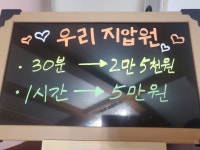 우리 지압원
· 30분 → 2만 5천원
· 1시간 → 5만원